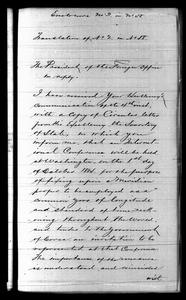 Enclosure No 3 in No 58
Translation of No 2 in No 58.
The President of the Foreign Office
in reply.
I have received Your Excellency's
communication of 4th inst,
with a copy of Circular letter
from His Excellency the Secretary
of State, in which you
inform me, that an Interna-
tional Conference will be held
at Washington, on the 1st day
of October 1884, for the purpose
of fixing upon a Meridian
proper to be employed as a
common zero of longitude
and standard of time reck-
oning throughout the World
and tender to the Government
of Corea an invitation to be
represented at that Conference.
The importance of the measure
is understood and considered